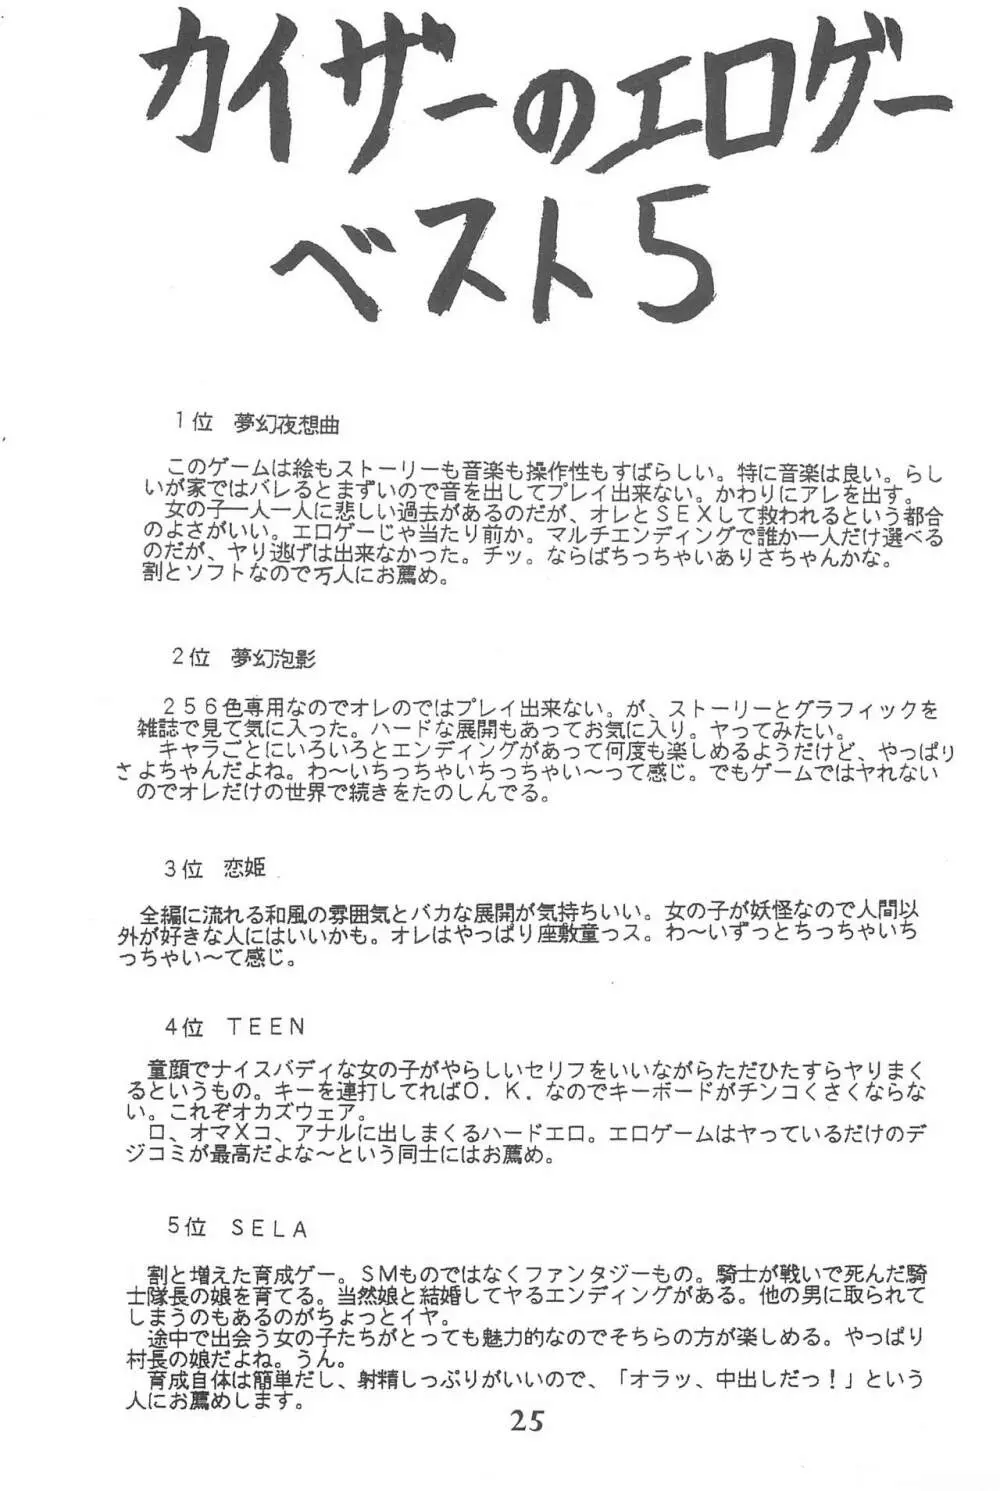 カイザーのエロゲー
ベスト5
1位 夢幻夜想曲
このゲームは絵もストーリーも音楽も操作性もすばらしい。特に音楽は良い。らし
いが家ではバレるとまずいので音を出してプレイ出来ない。かわりにアレを出す。
女の子一人一人に悲しい過去があるのだが、オレとＳＥＸして救われるという都合
のよさがいい。エロゲーじゃ当たり前か。マルチエンディングで誰か一人だけ選べる
のだが、ヤり逃げは出来なかった。チッ。ならばちっちゃいありさちゃんかな。
割とソフトなので万人にお薦め。
2位 夢幻泡影
２５６色専用なのでオレのではプレイ出来ない。が、ストーリーとグラフィックを
雑誌で見て気に入った。ハードな展開もあってお気に入り。ヤってみたい。
キャラごとにいろいろとエンディングがあって何度も楽しめるようだけど、やっぱり
さよちゃんだよね。わ～いちっちゃいちっちゃい～って感じ。でもゲームではヤれない
のでオレだけの世界で続きをたのしんでる。
3位 恋姫
全編に流れる和風の雰囲気とバカな展開が気持ちいい。女の子が妖怪なので人間以
外が好きな人にはいいかも。オレはやっぱり座敷童っス。わ～いずっとちっちゃいち
っちゃい～て感じ。
4位 ＴＥＥＮ
童顔でナイスバディな女の子がやらしいセリフをいいながらただひたすらヤりまく
るというもの。キーを連打してればＯ．Ｋ．なのでキーボードがチンコくさくならな
い。これぞオカズウェア。
ロ、オマＸコ、アナルに出しまくるハードエロ。エロゲームはヤっているだけのデ
ジコミが最高だよな～という同士にはお薦め。
5位 ＳＥＬＡ
割と増えた育成ゲー。ＳＭものではなくファンタジーもの。騎士が戦いで死んだ騎
士隊長の娘を育てる。当然娘と結婚してヤるエンディングがある。他の男に取られて
しまうのもあるのがちょっとイヤ。
途中で出会う女の子たちがとっても魅力的なのでそちらの方が楽しめる。やっぱり
村長の娘だよね。うん。
育成自体は簡単だし、射精しっぷりがいいので、「オラッ、中出しだっ！」という
人にお薦めします。
25